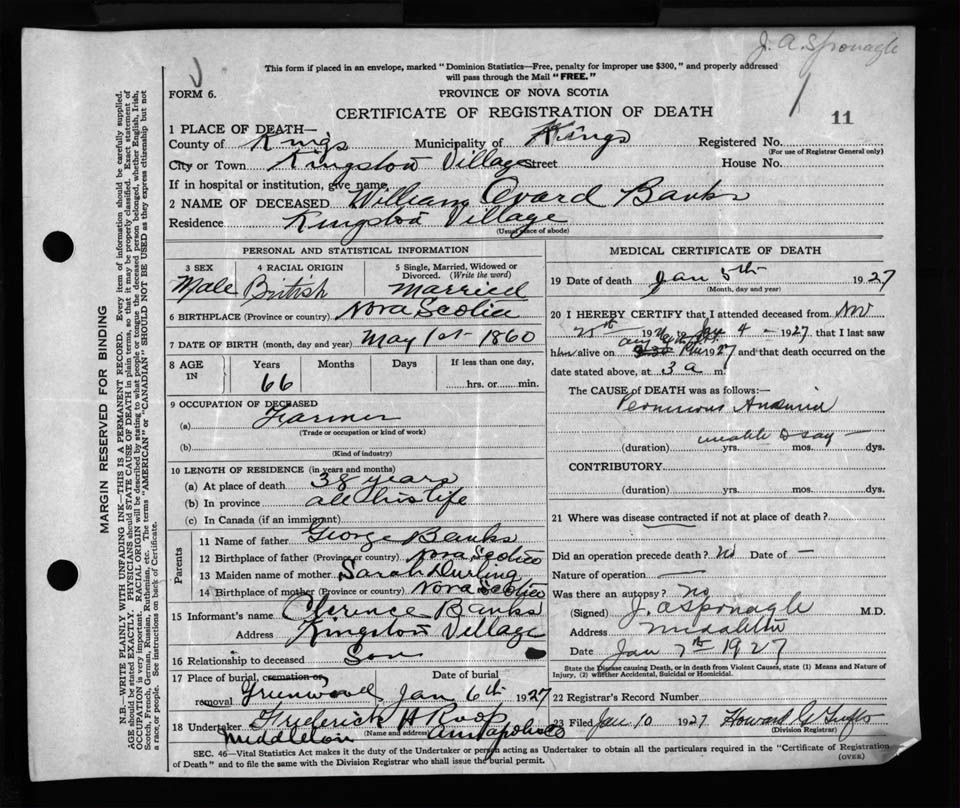 J. A. Sponagle
This form if placed in an envelope, marked "Dominion Statistics—Free, penalty for improper use $300," and properly addressed
will pass through the Mail "FREE."
FORM 6.
PROVINCE OF NOVA SCOTIA
CERTIFICATE OF REGISTRATION OF DEATH
11
1 PLACE OF DEATH—
County of Kings Municipality of Kings Registered No.
(For use of Registrar General only)
City or Town Kingston Village Street House No.
If in hospital or institution, give name
2 NAME OF DECEASED William Ovard Banks
Residence Kingston Village
(Usual place of abode)
PERSONAL AND STATISTICAL INFORMATION
3 SEX Male
4 RACIAL ORIGIN British
5 Single, Married, Widowed or Divorced. (Write the word) Married
6 BIRTHPLACE (Province or country) Nova Scotia
7 DATE OF BIRTH (month, day and year) May 1st 1860
8 AGE IN Years 66 Months Days If less than one day,
hrs. or min.
9 OCCUPATION OF DECEASED
(a) Farmer
(Trade or occupation or kind of work)
(b)
(Kind of industry)
10 LENGTH OF RESIDENCE (in years and months)
(a) At place of death 38 years
(b) In province all his life
(c) In Canada (if an immigrant)
Parents
11 Name of father George Banks
12 Birthplace of father (Province or country) Nova Scotia
13 Maiden name of mother Sarah Durling
14 Birthplace of mother (Province or country) Nova Scotia
15 Informant's name Clarence Banks
Address Kingston Village
16 Relationship to deceased Son
17 Place of burial, cremation or removal Greenwood
Date of burial Jan 6th 1927
18 Undertaker Frederick H Roop
(Name and address)
Middleton Annapolis Co
MEDICAL CERTIFICATE OF DEATH
19 Date of death Jan 5th 1927
(Month, day and year)
20 I HEREBY CERTIFY that I attended deceased from Nov
25th 192 to Jan 4 - 1927, that I last saw
him alive on 1927 and that death occurred on the
date stated above, at 3 a m.
The CAUSE OF DEATH was as follows:—
Pernicious Anaemia
unable to say
(duration) yrs. mos. dys.
CONTRIBUTORY
(duration) yrs. mos. dys.
21 Where was disease contracted if not at place of death?
Did an operation precede death? No Date of —
Nature of operation —
Was there an autopsy? No
(Signed) J. A Sponagle M.D.
Address Middleton
Date Jan 7th 1927
State the Disease causing Death, or in death from Violent Causes, state (1) Means and Nature of
Injury, (2) whether Accidental, Suicidal or Homicidal.
22 Registrar's Record Number
23 Filed Jan 10 1927 Howard G Tufts
(Division Registrar)
SEC. 46—Vital Statistics Act makes it the duty of the Undertaker or person acting as Undertaker to obtain all the particulars required in the "Certificate of Registration
of Death" and to file the same with the Division Registrar who shall issue the burial permit.
(OVER)
MARGIN RESERVED FOR BINDING
N.B.—WRITE PLAINLY WITH UNFADING INK—THIS IS A PERMANENT RECORD. Every item of information should be carefully supplied.
AGE should be stated EXACTLY. PHYSICIANS should STATE CAUSE OF DEATH in plain terms, so that it may be properly classified. Exact statement of
OCCUPATION is very important. RACIAL ORIGIN will be described by stating to what people or tongue the deceased person belonged, whether English, Irish,
Scotch, French, German, Russian, Ruthenian, etc. The terms "AMERICAN" or "CANADIAN" SHOULD NOT BE USED as they express citizenship but not
a race or people. See instructions on back of Certificate.